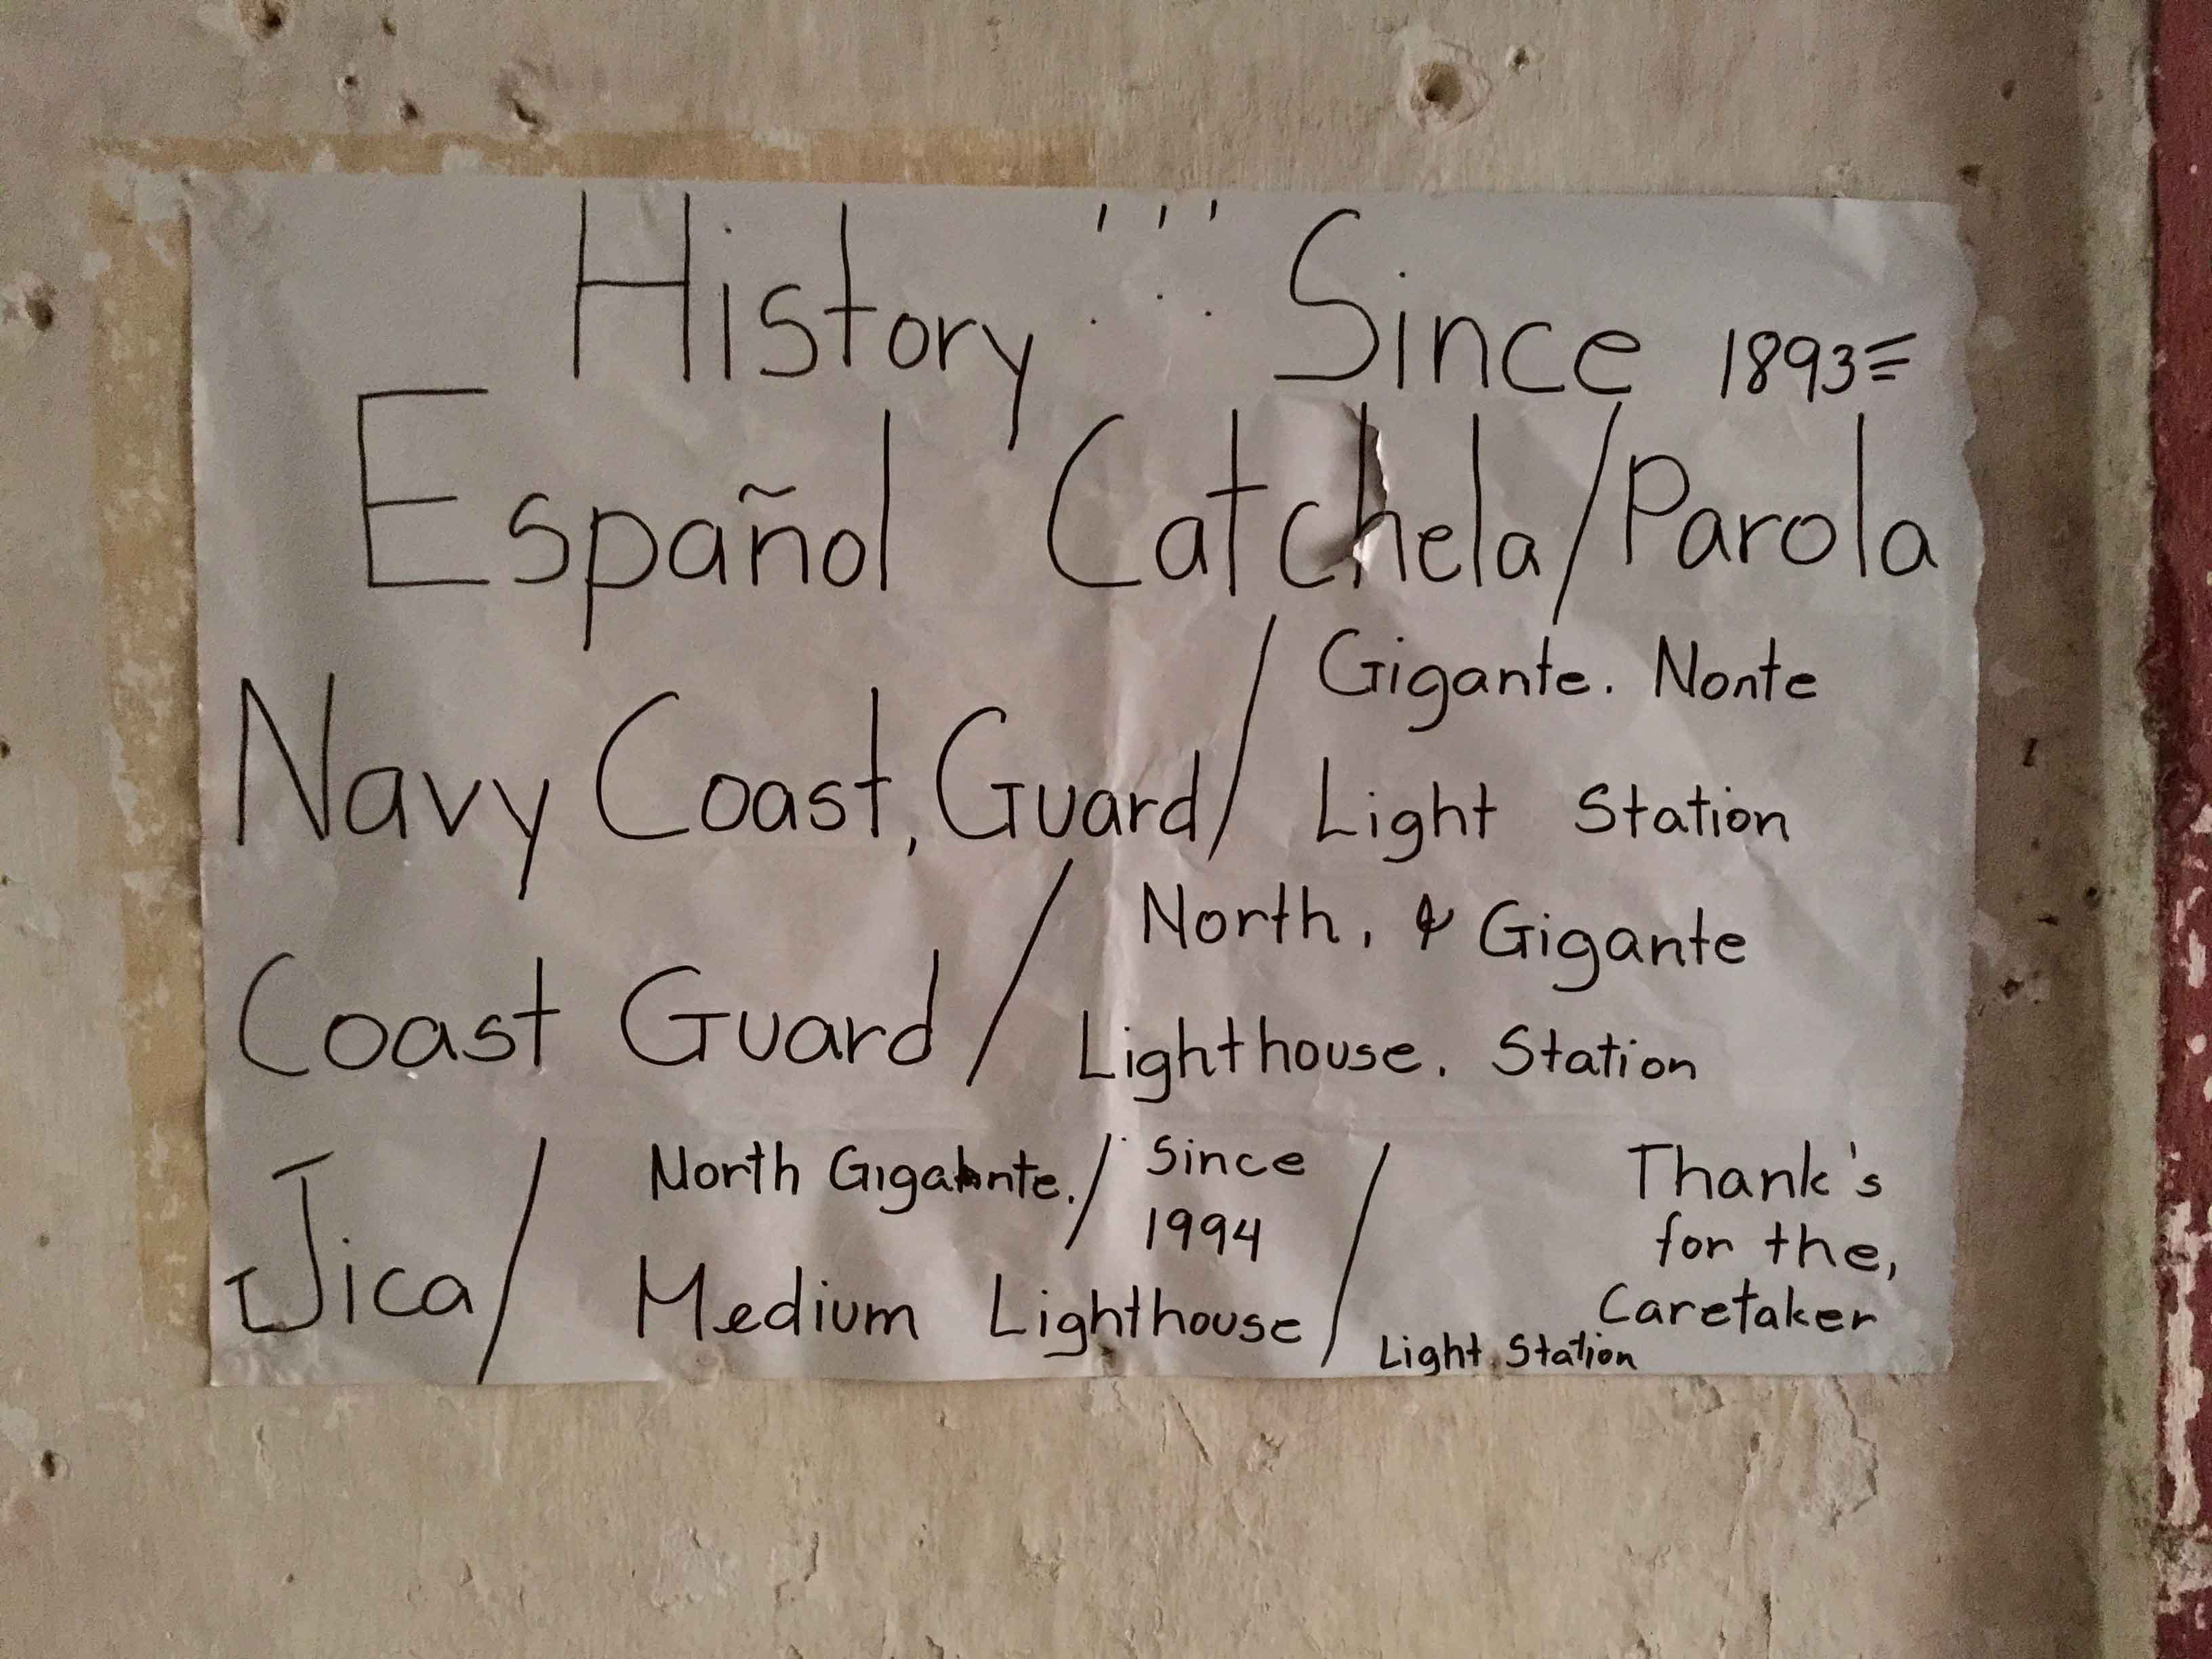 History !!! Since 1893=
Español Catchela/Parola
Navy Coast, Guard/ Gigante. Nonte
Light Station
Coast Guard/ North, & Gigante
Lighthouse. Station
Jica/ North Gigante./ Since 1994
Medium Lighthouse/
Light, Station
Thank's
for the,
Caretaker